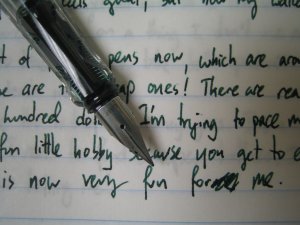 feels good, but now my walle
t of pens now, which are arou
se are cheap ones! There are rea
hundred dol I'm trying to pace m
fun little hobby because you get to e
is now very fun for me.